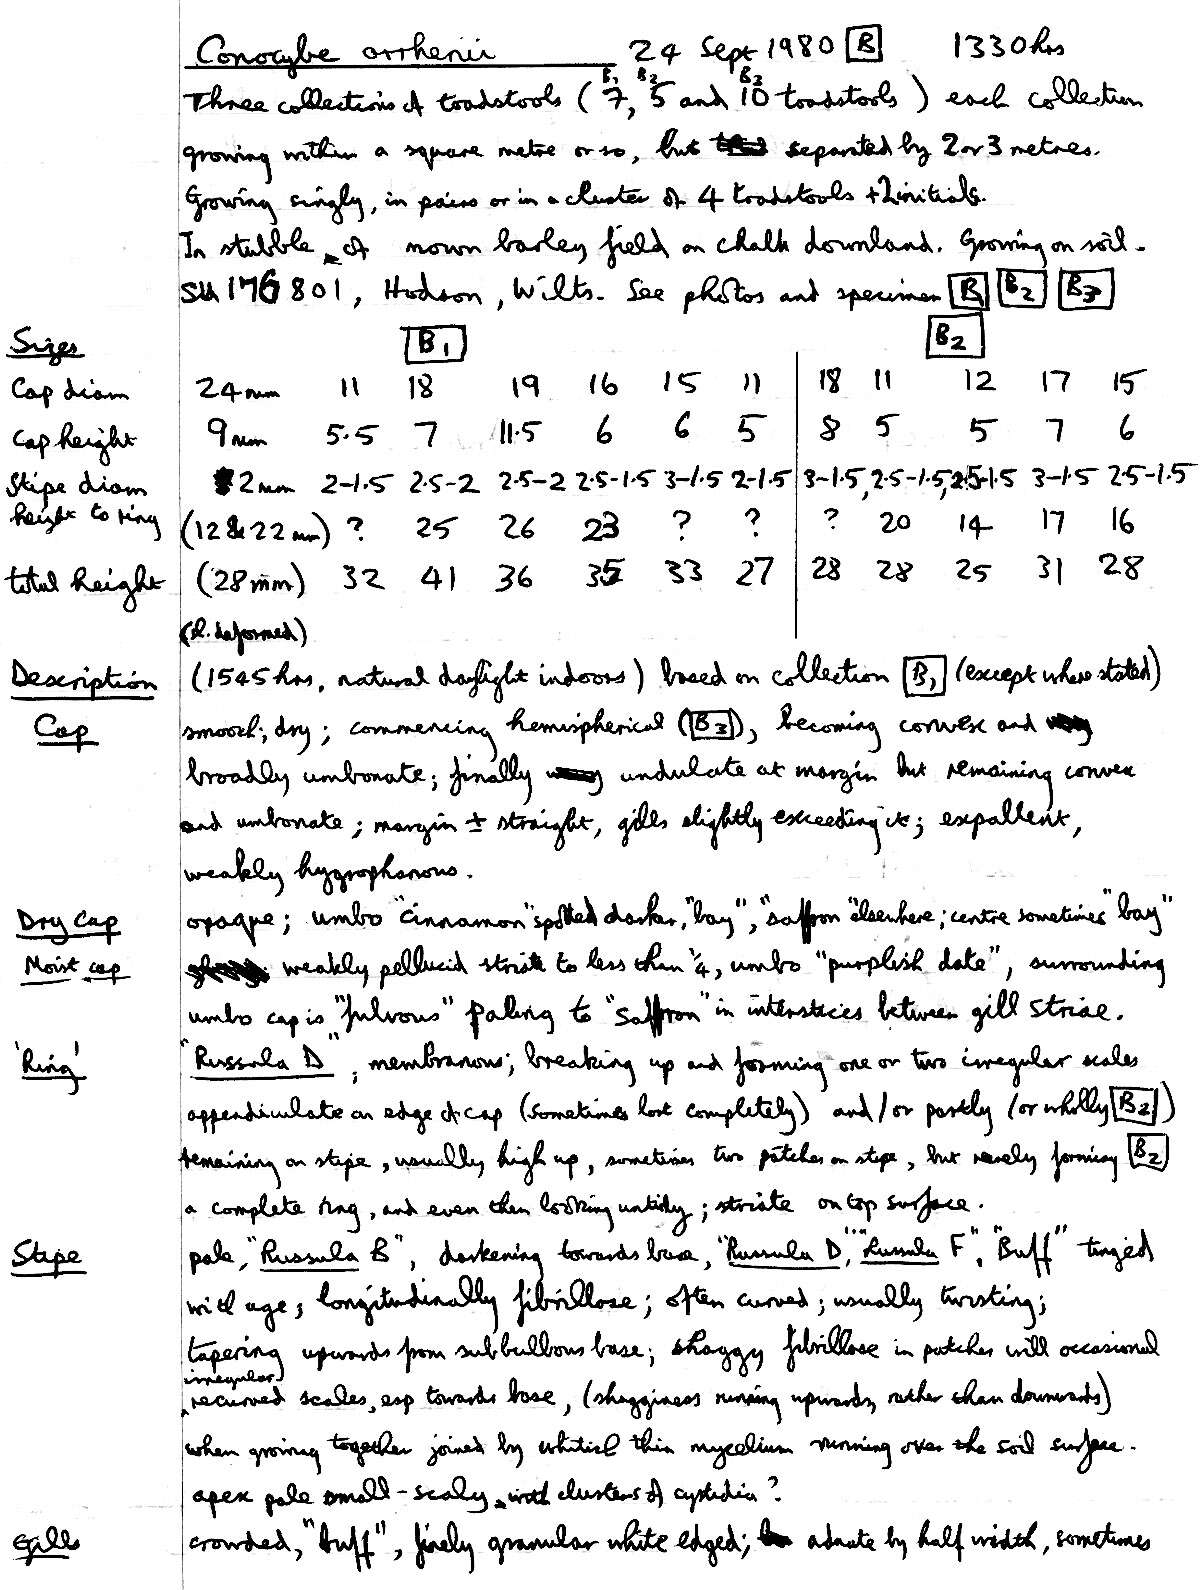 Conocybe arrhenii 24 Sept 1980 B 1330hrs
B1 B2 B3
Three collections of toadstools (7, 5 and 10 toadstools) each collection
growing within a square metre or so, but separated by 2 or 3 metres.
Growing singly, in pairs or in a cluster of 4 toadstools + 2 initials.
In stubble of mown barley field on chalk downland. Growing on soil.
SU 176 801, Hodson, Wilts. See photos and specimen B1 B2 B3
Sizes B1 B2
Cap diam 24mm 11 18 19 16 15 11 18 11 12 17 15
Cap height 9mm 5.5 7 11.5 6 6 5 8 5 5 7 6
Stipe diam 2mm 2-1.5 2.5-2 2.5-2 2.5-1.5 3-1.5 2-1.5 3-1.5, 2.5-1.5, 2.5-1.5 3-1.5 2.5-1.5
height to ring (12&22mm) ? 25 26 23 ? ? ? 20 14 17 16
total height (28mm) 32 41 36 35 33 27 28 28 25 31 28
(sl. deformed)
Description (1545hrs, natural daylight indoors) based on collection B1 (except where stated)
Cap smooth; dry; commencing hemispherical (B3), becoming convex and
broadly umbonate; finally undulate at margin but remaining convex
and umbonate; margin ± straight, gills slightly exceeding it; expallent,
weakly hygrophanous.
Dry cap opaque; umbo "cinnamon" spotted darker, "bay", "saffron" elsewhere; centre sometimes "bay"
Moist cap weakly pellucid striate to less than ¼, umbo "purplish date", surrounding
umbo cap is "fulvous" paling to "saffron" in interstices between gill striae.
'Ring' "Russula D", membranous; breaking up and forming one or two irregular scales
appendiculate on edge of cap (sometimes lost completely) and/or partly (or wholly B2)
remaining on stipe, usually high up, sometimes two patches on stipe, but rarely forming B2
a complete ring, and even then looking untidy; striate on top surface.
Stipe pale, "Russula B", darkening towards base, "Russula D", "Russula F", "Buff" tinged
with age; longitudinally fibrillose; often curved; usually twisting;
tapering upwards from subbulbous base; shaggy fibrillose in patches with occasional
irregular
recurved scales, esp towards base, (shagginess running upwards, rather than downwards)
when growing together joined by whitish thin mycelium running over the soil surface.
apex pale small-scaly with clusters of cystidia?
Gills crowded, "buff", finely granular white edged; adnate by half width, sometimes